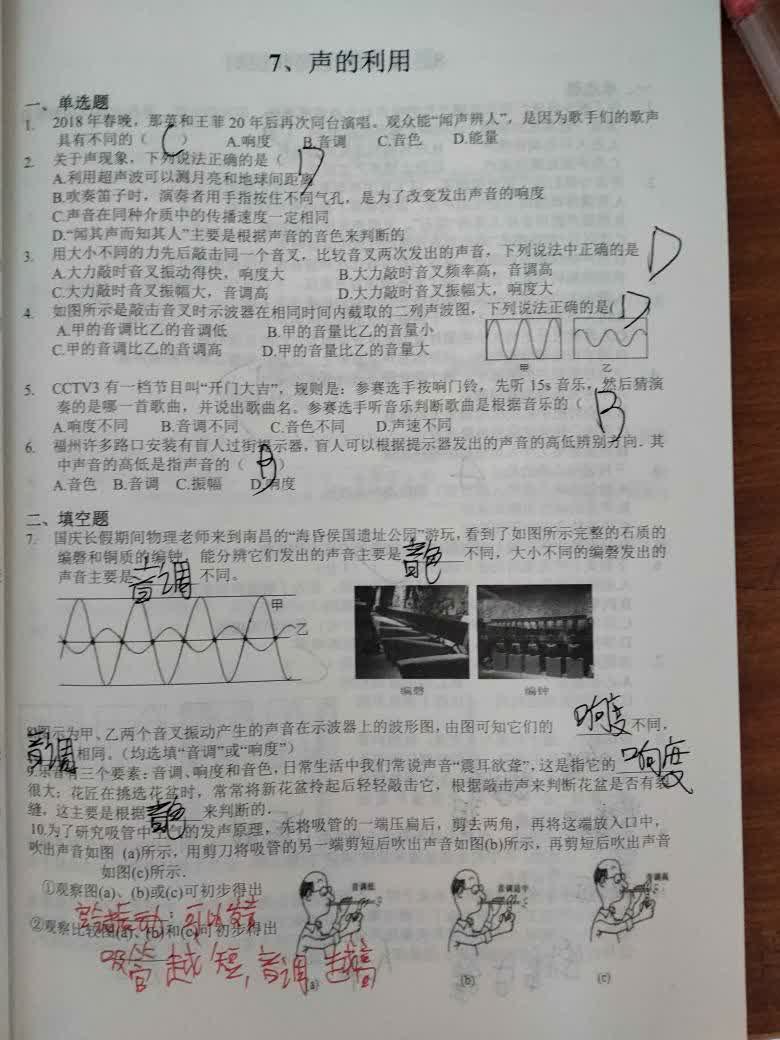 7、声的利用
一、单选题
1. 2018年春晚，那英和王菲20年后再次同台演唱。观众能“闻声辨人”，是因为歌手们的歌声
具有不同的（ C ） A.响度 B.音调 C.音色 D.能量
2. 关于声现象，下列说法正确的是（ D
A.利用超声波可以测月亮和地球间距离
B.吹奏笛子时，演奏者用手指按住不同气孔，是为了改变发出声音的响度
C.声音在同种介质中的传播速度一定相同
D.“闻其声而知其人”主要是根据声音的音色来判断的
3. 用大小不同的力先后敲击同一个音叉，比较音叉两次发出的声音，下列说法中正确的是 D
A.大力敲时音叉振动得快，响度大 B.大力敲时音叉频率高，音调高
C.大力敲时音叉振幅大，音调高 D.大力敲时音叉振幅大，响度大
4. 如图所示是敲击音叉时示波器在相同时间内截取的二列声波图，下列说法正确的是( D )
A.甲的音调比乙的音调低 B.甲的音量比乙的音量小
C.甲的音调比乙的音调高 D.甲的音量比乙的音量大
甲 乙
5. CCTV3有一档节目叫“开门大吉”，规则是：参赛选手按响门铃，先听15s音乐，然后猜演
奏的是哪一首歌曲，并说出歌曲名。参赛选手听音乐判断歌曲是根据音乐的（ B
A.响度不同 B.音调不同 C.音色不同 D.声速不同
6. 福州许多路口安装有盲人过街提示器，盲人可以根据提示器发出的声音的高低辨别方向．其
中声音的高低是指声音的（ B ）
A.音色 B.音调 C.振幅 D.响度
二、填空题
7. 国庆长假期间物理老师来到南昌的“海昏侯国遗址公园”游玩，看到了如图所示完整的石质的
编磬和铜质的编钟，能分辨它们发出的声音主要是 音色 不同，大小不同的编磬发出的
声音主要是 音调 不同。
甲
乙
编磬 编钟
图示为甲、乙两个音叉振动产生的声音在示波器上的波形图，由图可知它们的 响度 不同．
音调 相同。（均选填“音调”或“响度”）
9.乐音有三个要素：音调、响度和音色，日常生活中我们常说声音“震耳欲聋”，这是指它的 响度
很大；花匠在挑选花盆时，常常将新花盆拎起后轻轻敲击它，根据敲击声来判断花盆是否有裂
缝，这主要是根据 音色 来判断的．
10.为了研究吸管中空气的发声原理，先将吸管的一端压扁后，剪去两角，再将这端放入口中，
吹出声音如图 (a)所示，用剪刀将吸管的另一端剪短后吹出声音如图(b)所示，再剪短后吹出声音
如图(c)所示．
①观察图(a)、(b)或(c)可初步得出
音调低 音调适中 音调高
②观察比较图(a)、(b)和(c)可初步得出
吸管越短，音调越高
(a) (b) (c)